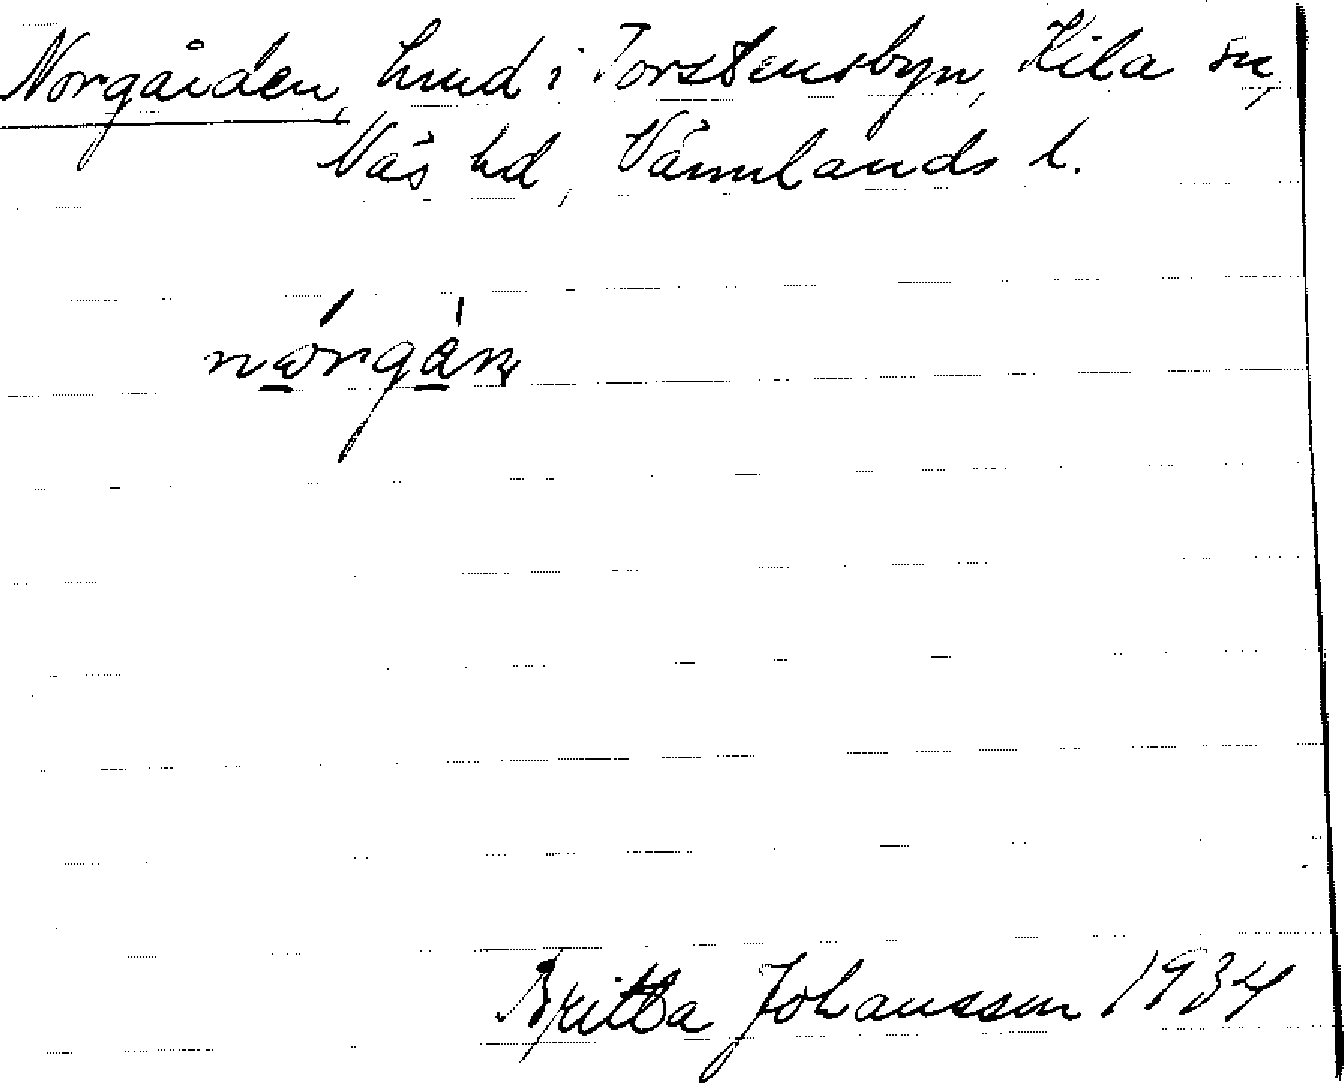 Norgården, hmd i Torstensbyn, Kila sn,
Näs hd, Värmlands l.
Britta Johansson 1934